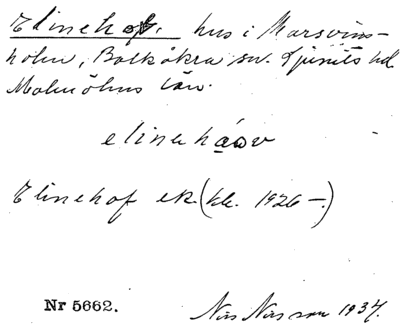 Elinehof. hus i Marsvins-
holm, Balkåkra sn. Ljunits hd.
Malmöhus län.
elineháòv
Elinehof ek. (kb. 1926 –.)
Nr 5662.
Nils Nilsson 1937.